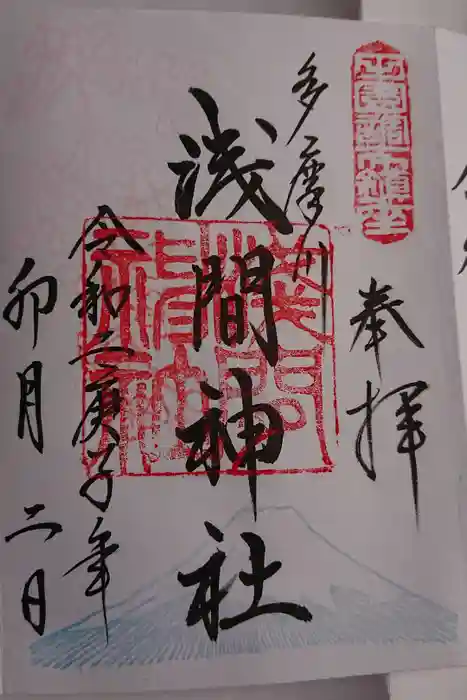 奉拝
多摩川
浅間神社
令和二庚子年
卯月二日
浅間神社